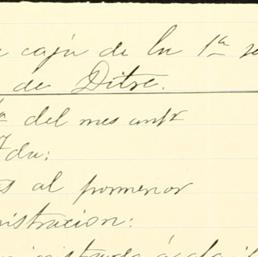 caja de la 1ª
de Ditre.
del mes antr
du:
al pormenor
nistracion: